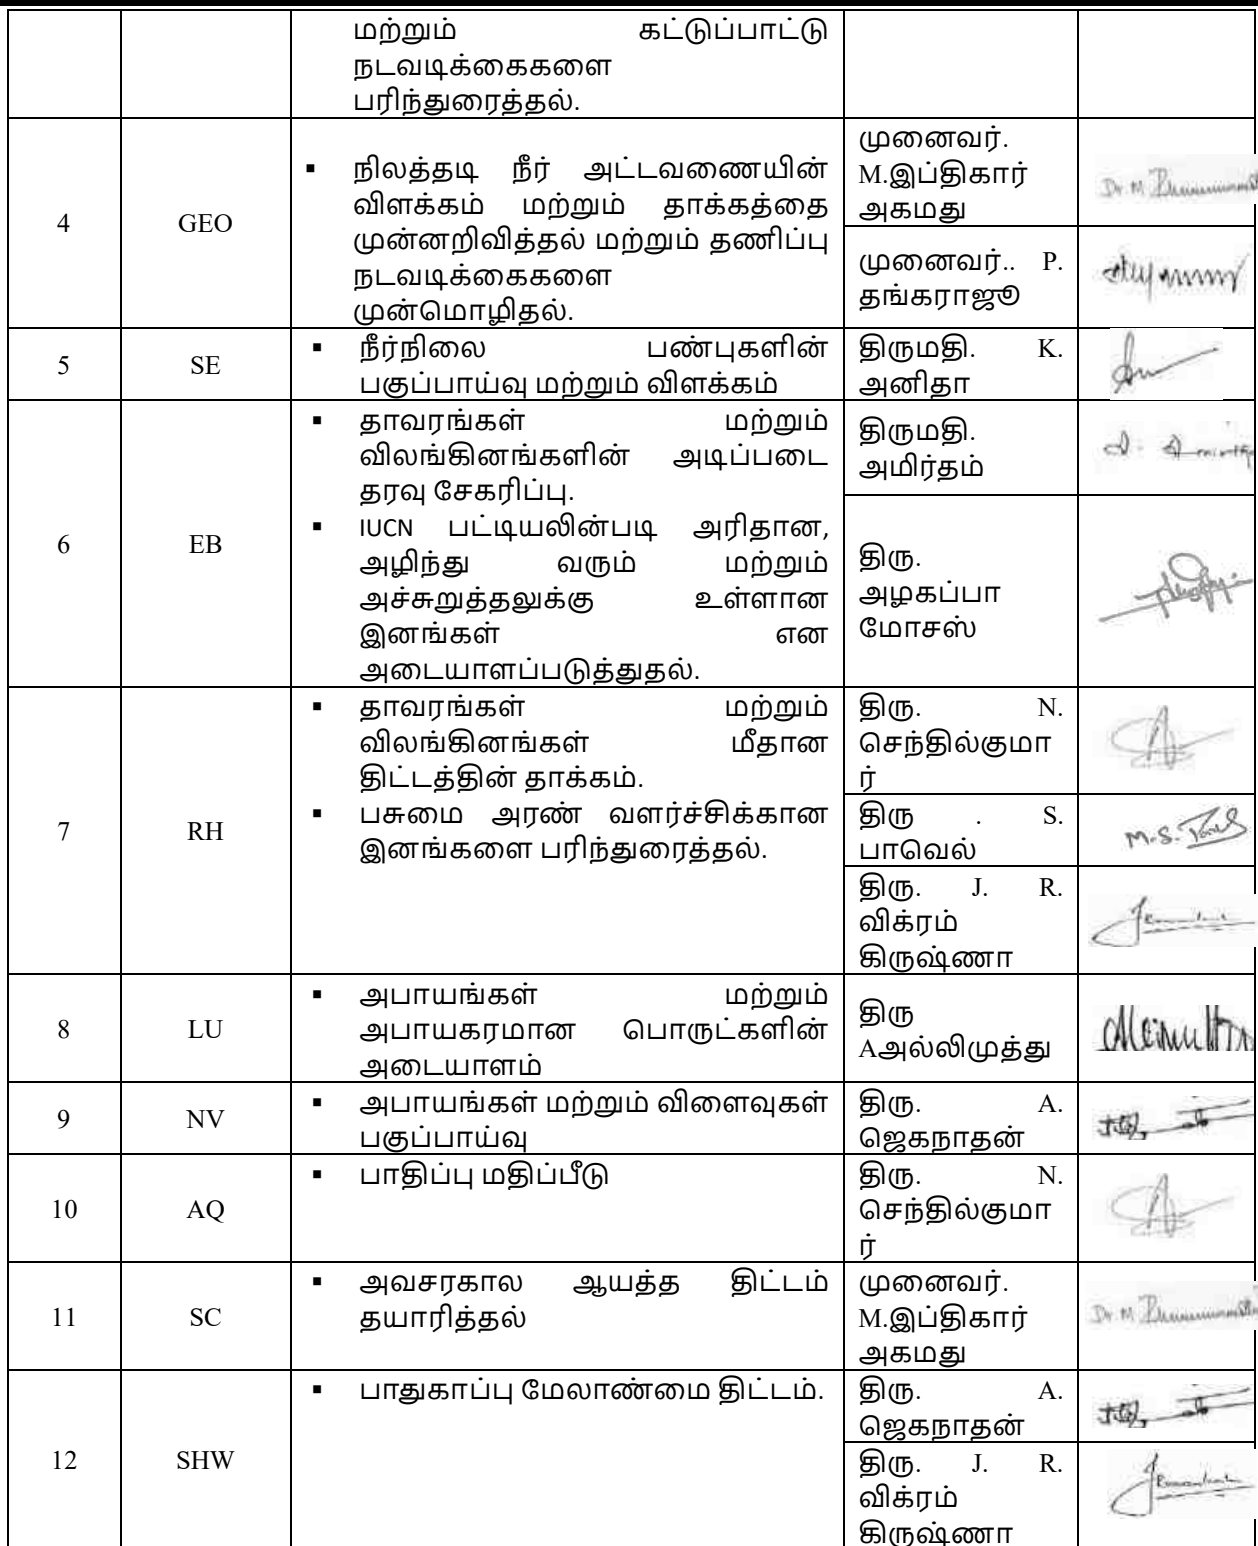 மற்றும் கட்டுப்பாட்டு
நடவடிக்கைகளை
பரிந்துரைத்தல்.
4
GEO
▪ நிலத்தடி நீர் அட்டவணையின்
விளக்கம் மற்றும் தாக்கத்தை
முன்னறிவித்தல் மற்றும் தணிப்பு
நடவடிக்கைகளை
முன்மொழிதல்.
முனைவர்.
M.இப்திகார்
அகமது
முனைவர்.. P.
தங்கராஜூ
5
SE
▪ நீர்நிலை பண்புகளின்
பகுப்பாய்வு மற்றும் விளக்கம்
திருமதி. K.
அனிதா
6
EB
▪ தாவரங்கள் மற்றும்
விலங்கினங்களின் அடிப்படை
தரவு சேகரிப்பு.
▪ IUCN பட்டியலின்படி அரிதான,
அழிந்து வரும் மற்றும்
அச்சுறுத்தலுக்கு உள்ளான
இனங்கள் என
அடையாளப்படுத்துதல்.
திருமதி.
அமிர்தம்
திரு.
அழகப்பா
மோசஸ்
7
RH
▪ தாவரங்கள் மற்றும்
விலங்கினங்கள் மீதான
திட்டத்தின் தாக்கம்.
▪ பசுமை அரண் வளர்ச்சிக்கான
இனங்களை பரிந்துரைத்தல்.
திரு. N.
செந்தில்குமா
ர்
திரு . S.
பாவெல்
M.S.
திரு. J. R.
விக்ரம்
கிருஷ்ணா
8
LU
▪ அபாயங்கள் மற்றும்
அபாயகரமான பொருட்களின்
அடையாளம்
திரு
Aஅல்லிமுத்து
9
NV
▪ அபாயங்கள் மற்றும் விளைவுகள்
பகுப்பாய்வு
திரு. A.
ஜெகநாதன்
10
AQ
▪ பாதிப்பு மதிப்பீடு
திரு. N.
செந்தில்குமா
ர்
11
SC
▪ அவசரகால ஆயத்த திட்டம்
தயாரித்தல்
முனைவர்.
M.இப்திகார்
அகமது
Dr. M
12
SHW
▪ பாதுகாப்பு மேலாண்மை திட்டம்.
திரு. A.
ஜெகநாதன்
திரு. J. R.
விக்ரம்
கிருஷ்ணா